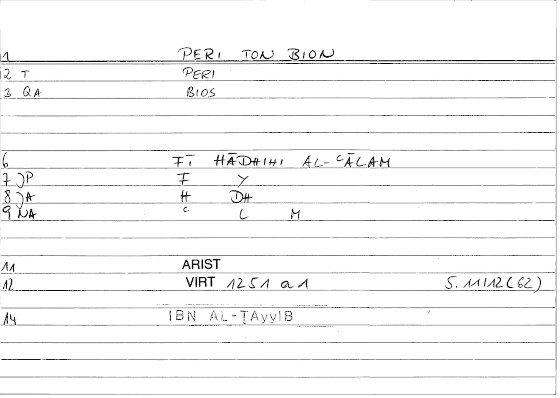 1 PERI TON BION
2 T PERI
3 QA BIOS
6 FĪ HĀDHIHI AL-ʿĀLAM
7 JP F Y
8 JA H DH
9 NA ʿ L M
11 ARIST
12 VIRT 1251 a1 S. 11/12 (62)
14 IBN AL-ṬAyyIB